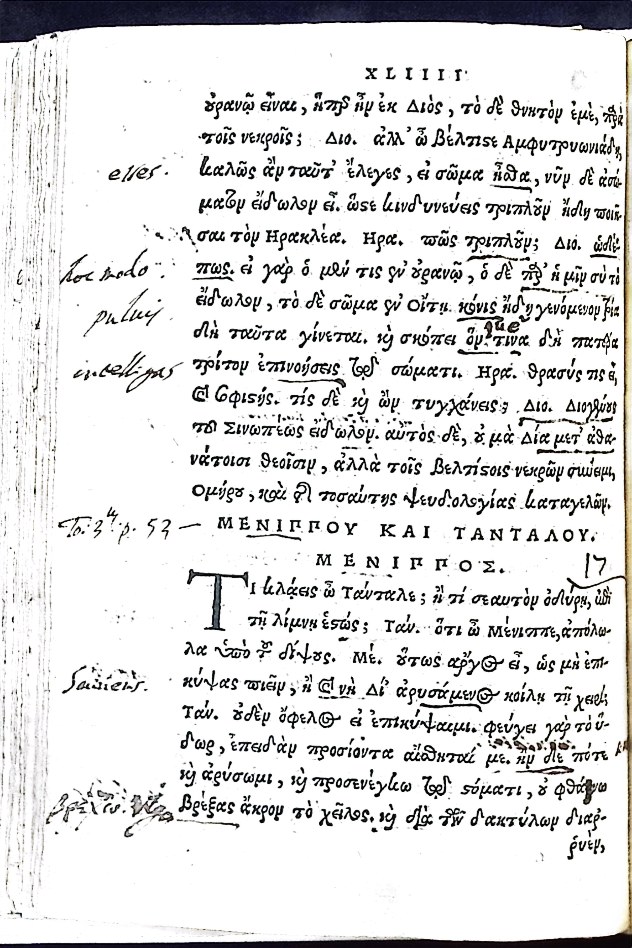 XLIIII
οὐρανῷ εἶναι, ἥπερ ἦν ἐκ Διὸς, τὸ δὲ θνητὸν ἐμὲ, παρὰ
τοῖς νεκροῖς; Διο. ἀλλ' ὦ βέλτιστε Αμφιτρυωνιάδη,
esses.
καλῶς ἂν ταῦτ' ἔλεγες, εἰ σῶμα ἦσθα, νῦν δὲ ἀσώ-
ματον εἴδωλον εἶ. ὥστε κινδυνεύεις τριπλοῦν ἤδη ποιῆ-
σαι τὸν Ηρακλέα. Ηρα. πῶς τριπλοῦν; Διο. ὧδέ-
hoc modo
πως. εἰ γὰρ ὁ μέν τις ἐν οὐρανῷ, ὁ δὲ παρ' ἡμῖν σὺ τὸ
pulvis
εἴδωλον, τὸ δὲ σῶμα ἐν Οἴτῃ κόνις ἤδη γενόμενον τρία
δὴ ταῦτα γίνεται. καὶ σκόπει ὅντινα δὴ πατέρα
intelligas
τρίτον ἐπινοήσεις τῷ σώματι. Ηρα. θρασύς τις εἶ,
καὶ σοφιστής. τίς δὲ καὶ ὢν τυγχάνεις; Διο. Διογένους
τοῦ Σινωπέως εἴδωλον. αὐτὸς δὲ, οὐ μὰ Δία μετ' ἀθα-
νάτοισι θεοῖσιν, ἀλλὰ τοῖς βελτίστοις νεκρῶν σύνειμι,
Ομήρου, καὶ τῆς τοσαύτης ψευδολογίας καταγελῶν.
To. 3. p. 53 —
ΜΕΝΙΠΠΟΥ ΚΑΙ ΤΑΝΤΑΛΟΥ.
ΜΕΝΙΠΠΟΣ. 17
ΤΙ κλάεις ὦ Τάνταλε; ἢ τί σεαυτὸν ὀδύρῃ, ἐπὶ
τῇ λίμνῃ ἑστώς; Ταν. ὅτι ὦ Μένιππε, ἀπόλω-
λα ὑπὸ τοῦ δίψους. Με. οὕτως ἀργὸς εἶ, ὡς μὴ ἐπι-
κύψας πιεῖν, ἢ καὶ νὴ Δί' ἀρυσάμενος κοίλῃ τῇ χειρί;
Ταν. οὐδὲν ὄφελος εἰ ἐπικύψαιμι. φεύγει γὰρ τὸ ὕ-
δωρ, ἐπειδὰν προσιόντα αἴσθηταί με. ἢν δέ ποτε
καὶ ἀρύσωμαι, καὶ προσενέγκω τῷ στόματι, οὐ φθάνω
βρέξας ἄκρον τὸ χεῖλος. καὶ διὰ τῶν δακτύλων διαρ-
ρυὲν,